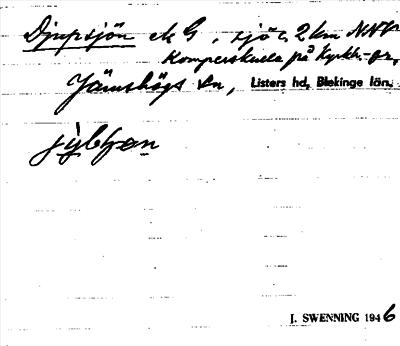 Djupsjön ek G, sjö c. 2 km NNV
Komperskulla på Kyrkh.-
Jämshögs sn, Listers hd, Blekinge län.
J. SWENNING 1946